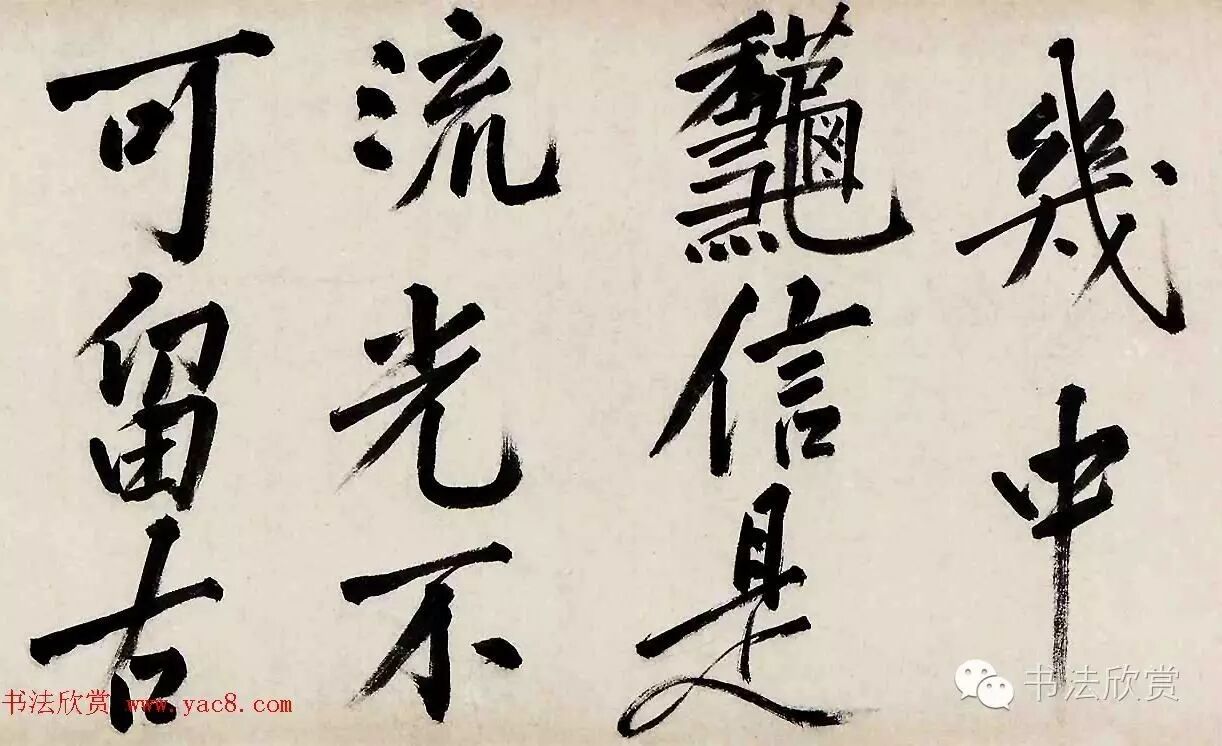 幾中
信是
流光不
可留古
书法欣赏 www.yac8.com
书法欣赏